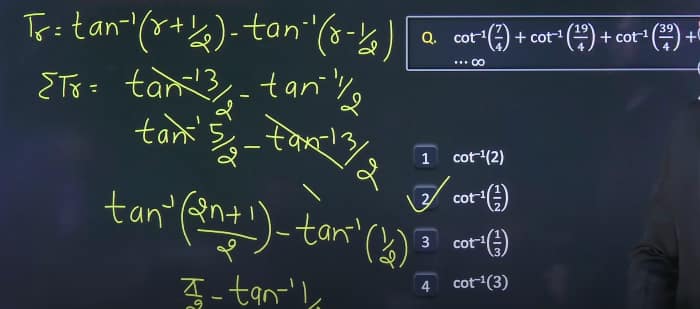 Tr = tan⁻¹(r+1/2) - tan⁻¹(r-1/2)
ΣTr = tan⁻¹3/2 - tan⁻¹1/2
tan⁻¹5/2 - tan⁻¹3/2
tan⁻¹(2n+1/2) - tan⁻¹(1/2)
π/2 - tan⁻¹1/
Q. cot⁻¹(7/4) + cot⁻¹(19/4) + cot⁻¹(39/4) +
... ∞
1 cot⁻¹(2)
2 cot⁻¹(1/2)
3 cot⁻¹(1/3)
4 cot⁻¹(3)